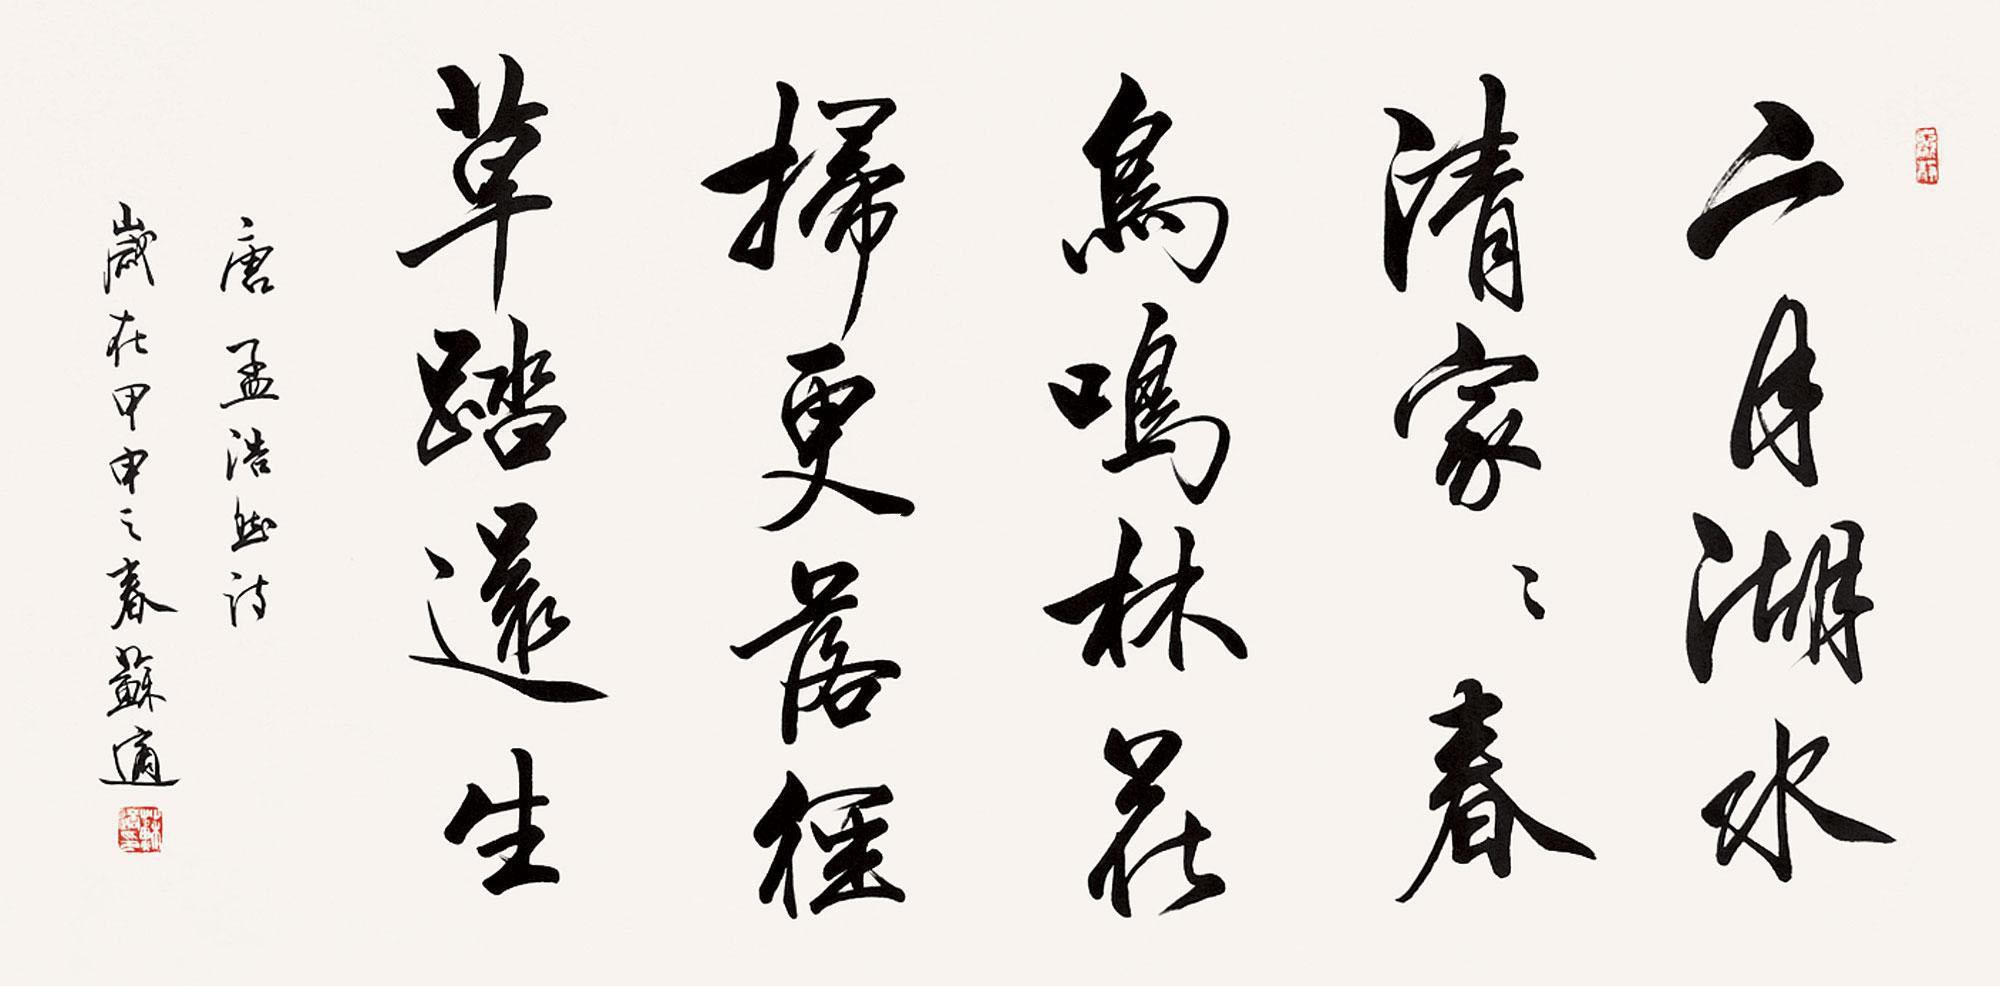 二月湖水
清家〻春
鳥鳴林花
掃更落徑
草踏還生
唐孟浩然詩
歲在甲申之春蘇適